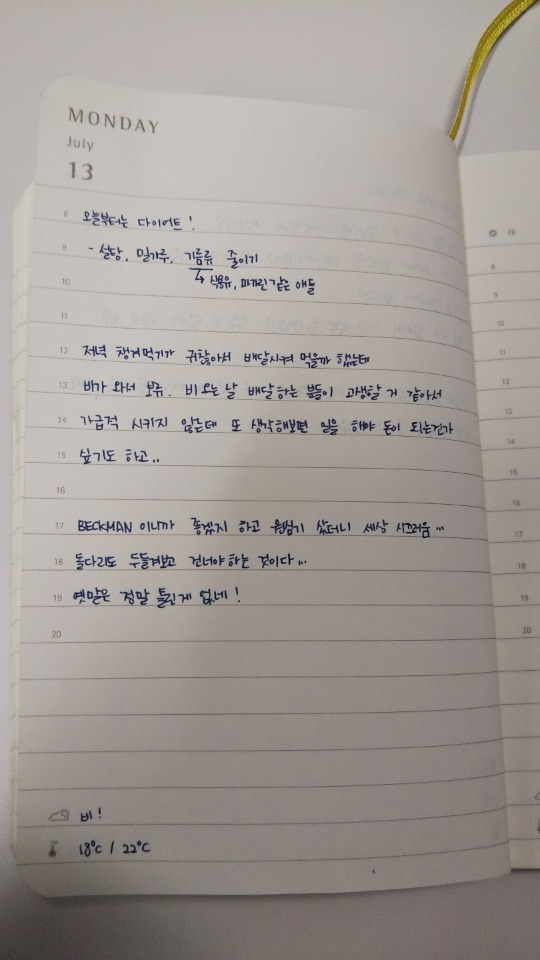 MONDAY
July
13
8 오늘부터는 다이어트!
9 - 설탕, 밀가루, 기름류 줄이기
10 ↳ 식용유, 마가린 같은 애들
11
12 저녁 챙겨먹기가 귀찮아서 배달시켜 먹을까 했는데
13 비가 와서 보류. 비 오는 날 배달하는 분들이 고생할 거 같아서
14 가급적 시키지 않는데 또 생각해보면 일을 해야 돈이 되는건가
15 싶기도 하고..
16
17 BECKMAN 이니까 좋겠지 하고 원심기 샀더니 세상 시끄러움...
18 돌다리도 두들겨보고 건너야 하는 것이다...
19 옛말은 정말 틀린게 없네!
20
비!
18°C / 22°C
FRI
8
9
10
11
12
13
14
15
16
17
18
19
20